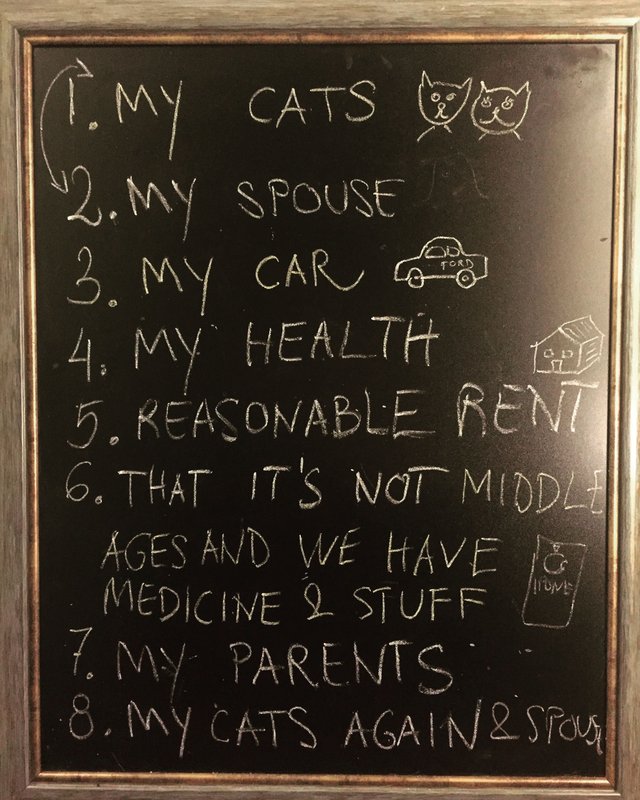 1. MY CATS
2. MY SPOUSE
3. MY CAR
FORD
4. MY HEALTH
5. REASONABLE RENT
6. THAT IT'S NOT MIDDLE
AGES AND WE HAVE
MEDICINE & STUFF
7. MY PARENTS
8. MY CATS AGAIN & SPOUSE